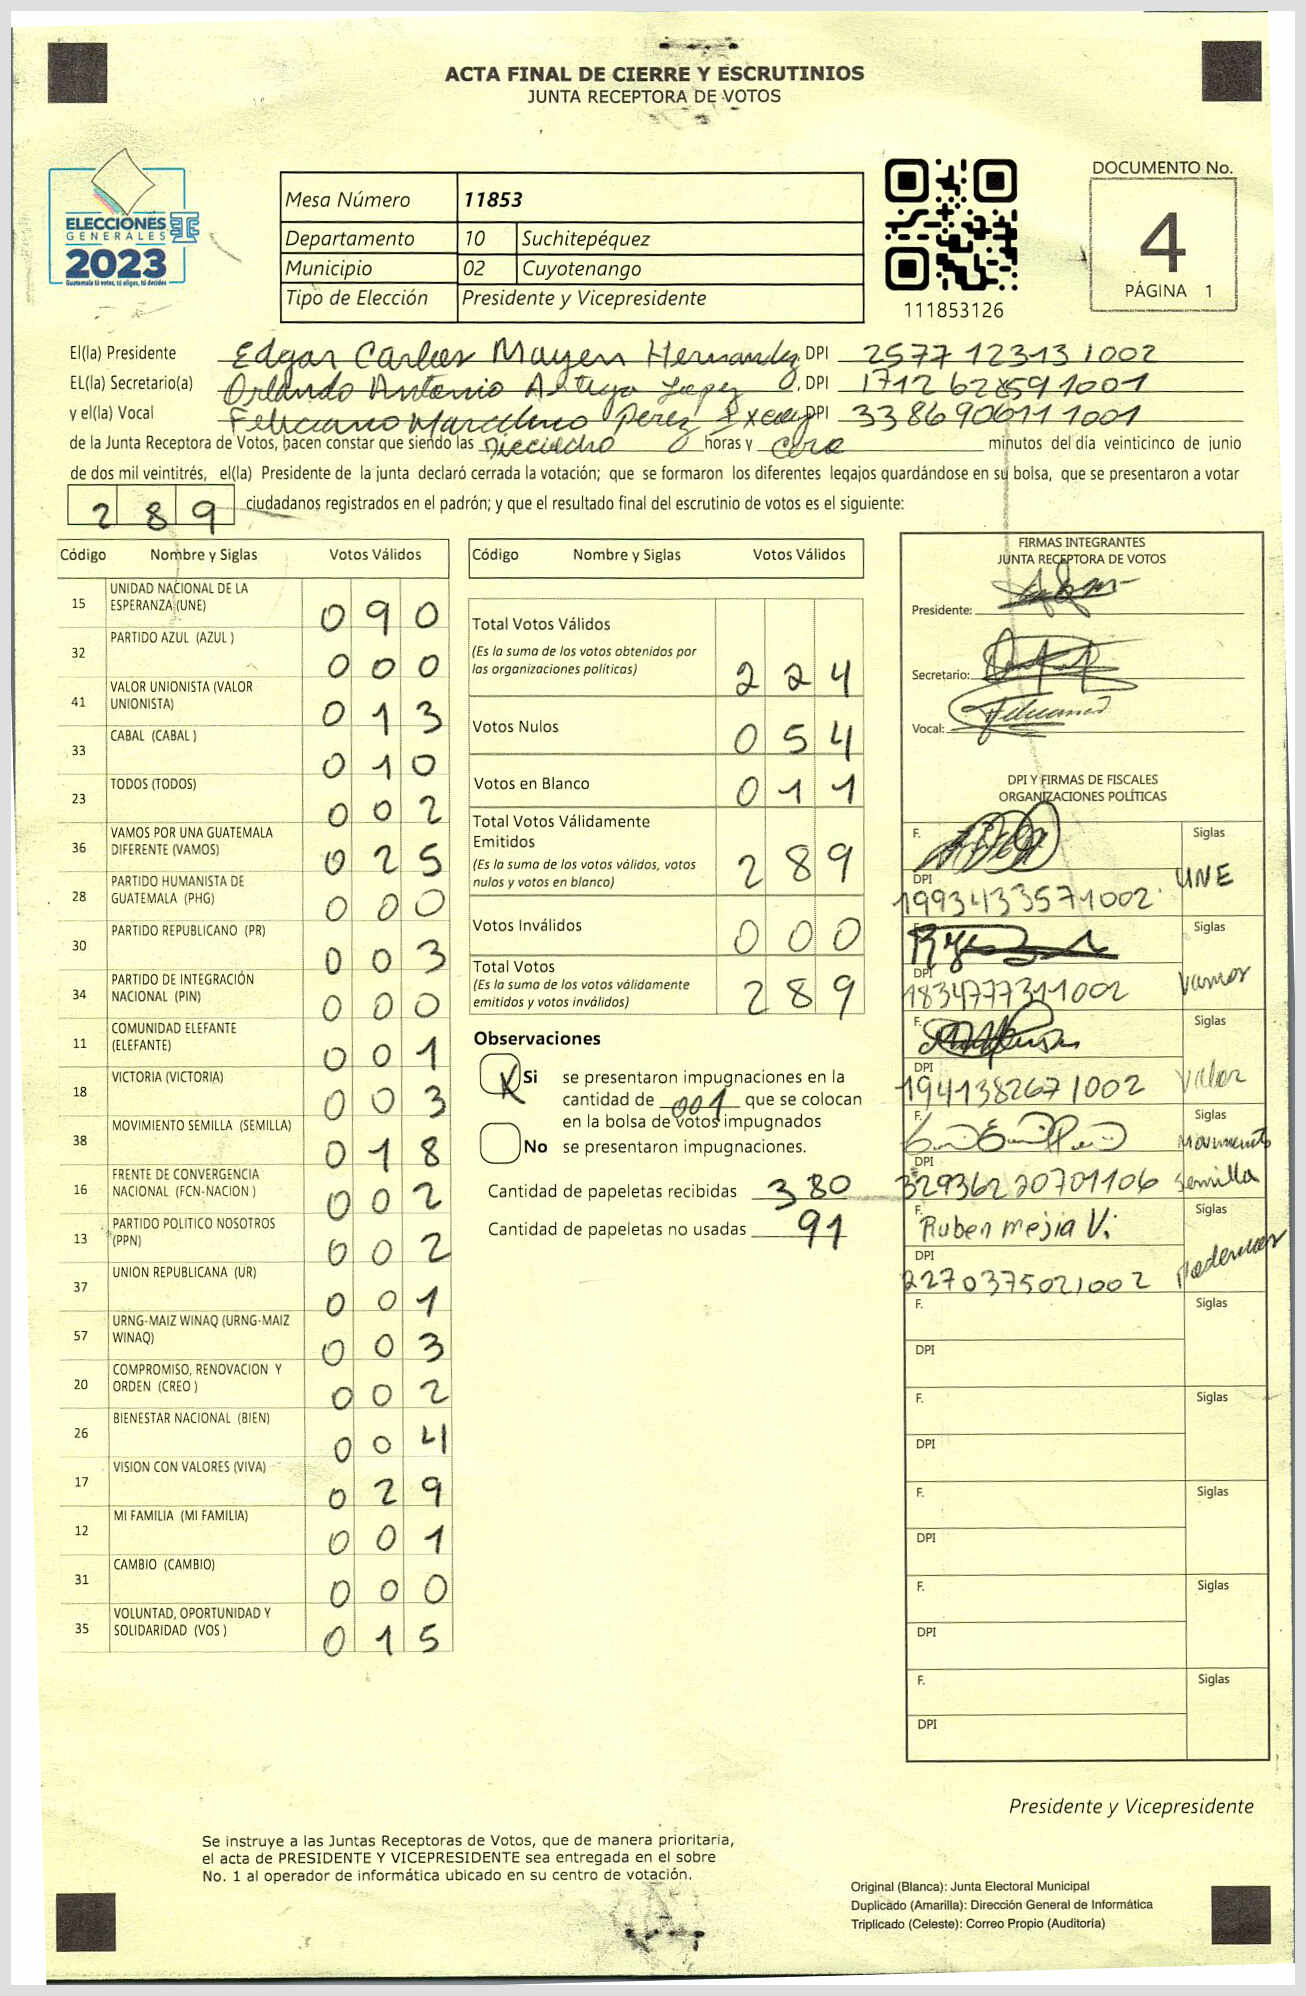 ACTA FINAL DE CIERRE Y ESCRUTINIOS
JUNTA RECEPTORA DE VOTOS
ELECCIONES
GENERALES
2023
Guatemala tú votas, tú eliges, tú decides
Mesa Número 11853
Departamento 10 Suchitepéquez
Municipio 02 Cuyotenango
Tipo de Elección Presidente y Vicepresidente
111853126
DOCUMENTO No.
4
PÁGINA 1
El(la) Presidente Edgar Carlos Mayen Hernandez DPI 2577 12313 1002
EL(la) Secretario(a) Orlando Antonio Lopez, DPI 1712 62859 1001
y el(la) Vocal Feliciano Marcelino Perez DPI 3386906111001
de la Junta Receptora de Votos, hacen constar que siendo las Dieciocho horas y cero minutos del día veinticinco de junio
de dos mil veintitrés, el(la) Presidente de la junta declaró cerrada la votación; que se formaron los diferentes legajos guardándose en su bolsa, que se presentaron a votar
289 ciudadanos registrados en el padrón; y que el resultado final del escrutinio de votos es el siguiente:
Código Nombre y Siglas Votos Válidos
15 UNIDAD NACIONAL DE LA ESPERANZA (UNE) 090
32 PARTIDO AZUL (AZUL ) 000
41 VALOR UNIONISTA (VALOR UNIONISTA) 013
33 CABAL (CABAL ) 010
23 TODOS (TODOS) 002
36 VAMOS POR UNA GUATEMALA DIFERENTE (VAMOS) 025
28 PARTIDO HUMANISTA DE GUATEMALA (PHG) 000
30 PARTIDO REPUBLICANO (PR) 003
34 PARTIDO DE INTEGRACIÓN NACIONAL (PIN) 000
11 COMUNIDAD ELEFANTE (ELEFANTE) 001
18 VICTORIA (VICTORIA) 003
38 MOVIMIENTO SEMILLA (SEMILLA) 018
16 FRENTE DE CONVERGENCIA NACIONAL (FCN-NACION ) 002
13 PARTIDO POLITICO NOSOTROS (PPN) 002
37 UNION REPUBLICANA (UR) 001
57 URNG-MAIZ WINAQ (URNG-MAIZ WINAQ) 003
20 COMPROMISO, RENOVACION Y ORDEN (CREO ) 002
26 BIENESTAR NACIONAL (BIEN) 004
17 VISION CON VALORES (VIVA) 029
12 MI FAMILIA (MI FAMILIA) 001
31 CAMBIO (CAMBIO) 000
35 VOLUNTAD, OPORTUNIDAD Y SOLIDARIDAD (VOS ) 015
Código Nombre y Siglas Votos Válidos
Total Votos Válidos
(Es la suma de los votos obtenidos por
las organizaciones políticas) 224
Votos Nulos 054
Votos en Blanco 011
Total Votos Válidamente
Emitidos
(Es la suma de los votos válidos, votos
nulos y votos en blanco) 289
Votos Inválidos 000
Total Votos
(Es la suma de los votos válidamente
emitidos y votos inválidos) 289
Observaciones
X Si se presentaron impugnaciones en la
cantidad de 001 que se colocan
en la bolsa de votos impugnados
No se presentaron impugnaciones.
Cantidad de papeletas recibidas 380
Cantidad de papeletas no usadas 91
FIRMAS INTEGRANTES
JUNTA RECEPTORA DE VOTOS
Presidente:
Secretario:
Vocal:
DPI Y FIRMAS DE FISCALES
ORGANIZACIONES POLÍTICAS
F. Siglas
DPI UNE
1993413357 1002
F. Siglas
DPI Vamos
1834777311002
F. Siglas
DPI Valor
1941382671002
F. Siglas
DPI Movimiento
3293622070 1106 Semilla
F. Ruben Mejia V. Siglas
DPI Podemos
2270375021002
F. Siglas
DPI
F. Siglas
DPI
F. Siglas
DPI
F. Siglas
DPI
F. Siglas
DPI
Presidente y Vicepresidente
Se instruye a las Juntas Receptoras de Votos, que de manera prioritaria,
el acta de PRESIDENTE Y VICEPRESIDENTE sea entregada en el sobre
No. 1 al operador de informática ubicado en su centro de votación.
Original (Blanca): Junta Electoral Municipal
Duplicado (Amarilla): Dirección General de Informática
Triplicado (Celeste): Correo Propio (Auditoría)